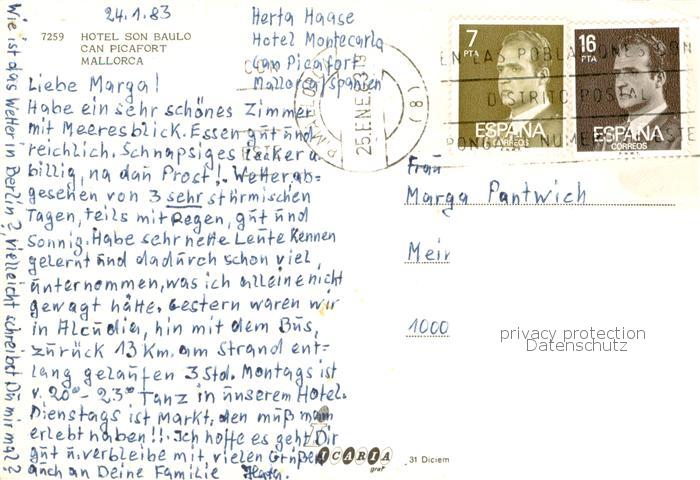 24.1.83
7259 HOTEL SON BAULO
CAN PICAFORT
MALLORCA
Herta Haase
Hotel Montecarlo
Can Picafort
Mallorca/Spanien
Liebe Marga!
Habe ein sehr schönes Zimmer
mit Meeresblick. Essen gut und
reichlich. Schnapsiges lecker u.
billig, na dan Prost! Wetter ab-
gesehen von 3 sehr stürmischen
Tagen, teils mit Regen, gut und
Sonnig. Habe sehr nette Leute kennen
gelernt und dadurch schon viel
unternommen, was ich alleine nicht
gewagt hätte. Gestern waren wir
in Alcudia, hin mit dem Bus,
zurück 13 Km. am Strand ent-
lang gelaufen 3 Std. Montags ist
v. 20°° - 23°° Tanz in unserem Hotel.
Dienstags ist Markt, den muß man
erlebt haben!! Ich hoffe es geht Dir
gut u. verbleibe mit vielen Grüßen
auch an Deine Familie Herta.
Wie ist das Wetter in Berlin? Vielleicht schreibst Du mir mal?
7
PTA
ESPAÑA
CORREOS
F.N.M.T.
16
PTA
ESPAÑA
CORREOS
F.N.M.T.
EN LAS POBLACIONES CON
DISTRITO POSTAL
PONGA NUMERO ESTE
25.ENE.83
(8)
Frau
Marga Pantwich
Mein
1000
privacy protection
Datenschutz
ICARIA
graf
31 Diciem